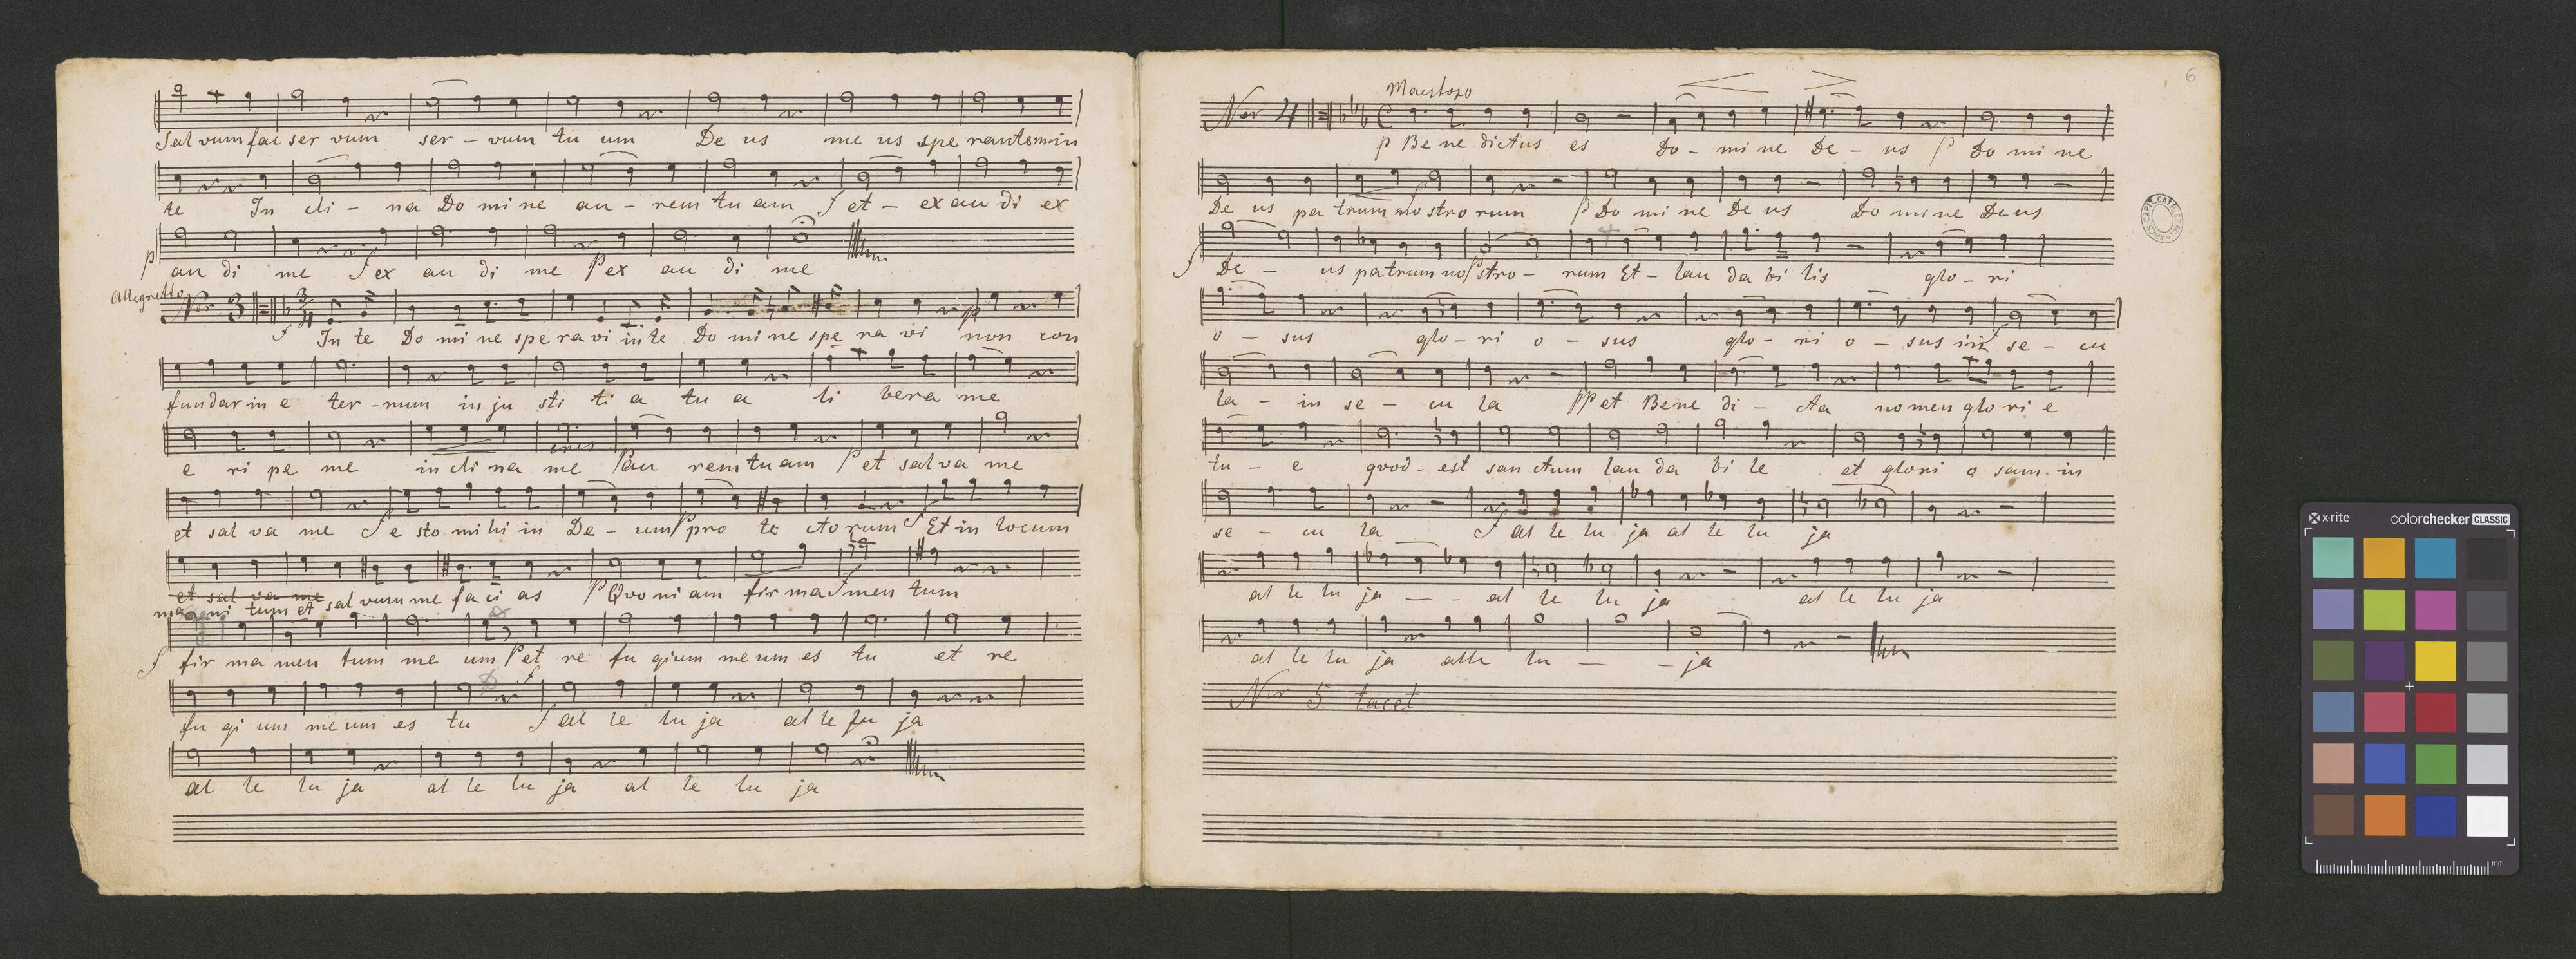 Sal vum fac ser vum ser - vum tu um De us me us spe rantem in
te In cli - na Do mi ne au - rem tu am f et - ex au di ex
p au di me f ex au di me P ex au di me
Allegretto
Nro 3 3/4
f In te Do mi ne spe ra vi in te Do mi ne spe ra vi non con
fun dar in e ter - num in ju sti ti a tu a li bera me
e ri pe me in cli na me P au rem tu am P et sal va me
cres
et sal va me f e sto mi hi in De - um P pro te cto rum f Et in locum
et sal va me
mu ni tum et sal vum me fa ci as P Quo ni am fir ma f men tum
f fir ma men tum me um P et re fu gium me um es tu et re
fu gi um me um es tu f al le lu ja al le lu ja
al le lu ja al le lu ja al le lu ja
6
Maestoso
Nro 4 C
p Be ne dictus es Do - mi ne De - us P Do mi ne
De us pa trum no stro rum P Do mi ne De us Do mi ne De us
f De - us patrum no P stro - rum Et - lau da bi lis glo - ri
o - sus glo - ri o - sus glo - ri o - sus in f se - cu
la - in se - cu la PP et Bene di - cta nomen glo ri e
tu - e qvod - est san ctum lau da bi le et glori o sam in
se - cu la f al le lu ja al le lu ja
al le lu ja - - al le lu ja al le lu ja
al le lu ja alle lu - - ja
Nro 5 tacet
x-rite colorchecker CLASSIC
mm